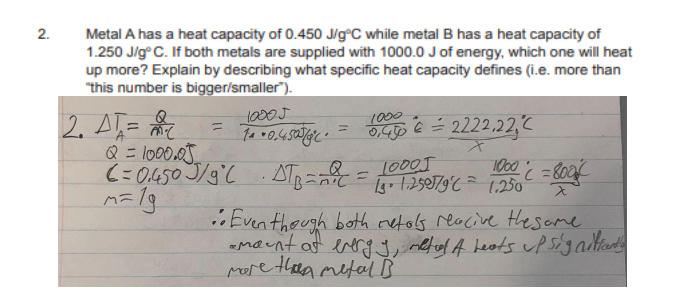 2. Metal A has a heat capacity of 0.450 J/g°C while metal B has a heat capacity of
1.250 J/g°C. If both metals are supplied with 1000.0 J of energy, which one will heat
up more? Explain by describing what specific heat capacity defines (i.e. more than
"this number is bigger/smaller").
2. ΔT_A = Q/m·c = 1000J/1g·0.450J/g°C = 1000/0.450 °C = 2222.22°C
Q = 1000.0J
C = 0.450 J/g°C . ΔT_B = Q/m·C = 1000J/1g·1.250J/g°C = 1000/1.250 °C = 800°C
m = 1g
∴ Even though both metals reacive the same
amount of energy, metal A heats up significantly
more than metal B